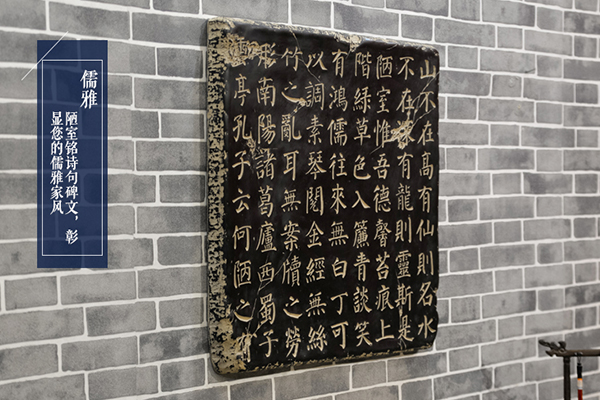 儒雅
陋室铭诗句碑文，彰
显您的儒雅家风
山不在高有仙則名水
不在深有龍則靈斯是
陋室惟吾德馨苔痕上
階綠草色入簾青談笑
有鴻儒往來無白丁可
以調素琴閱金經無絲
竹之亂耳無案牘之勞
形南陽諸葛廬西蜀子
雲亭孔子云何陋之有